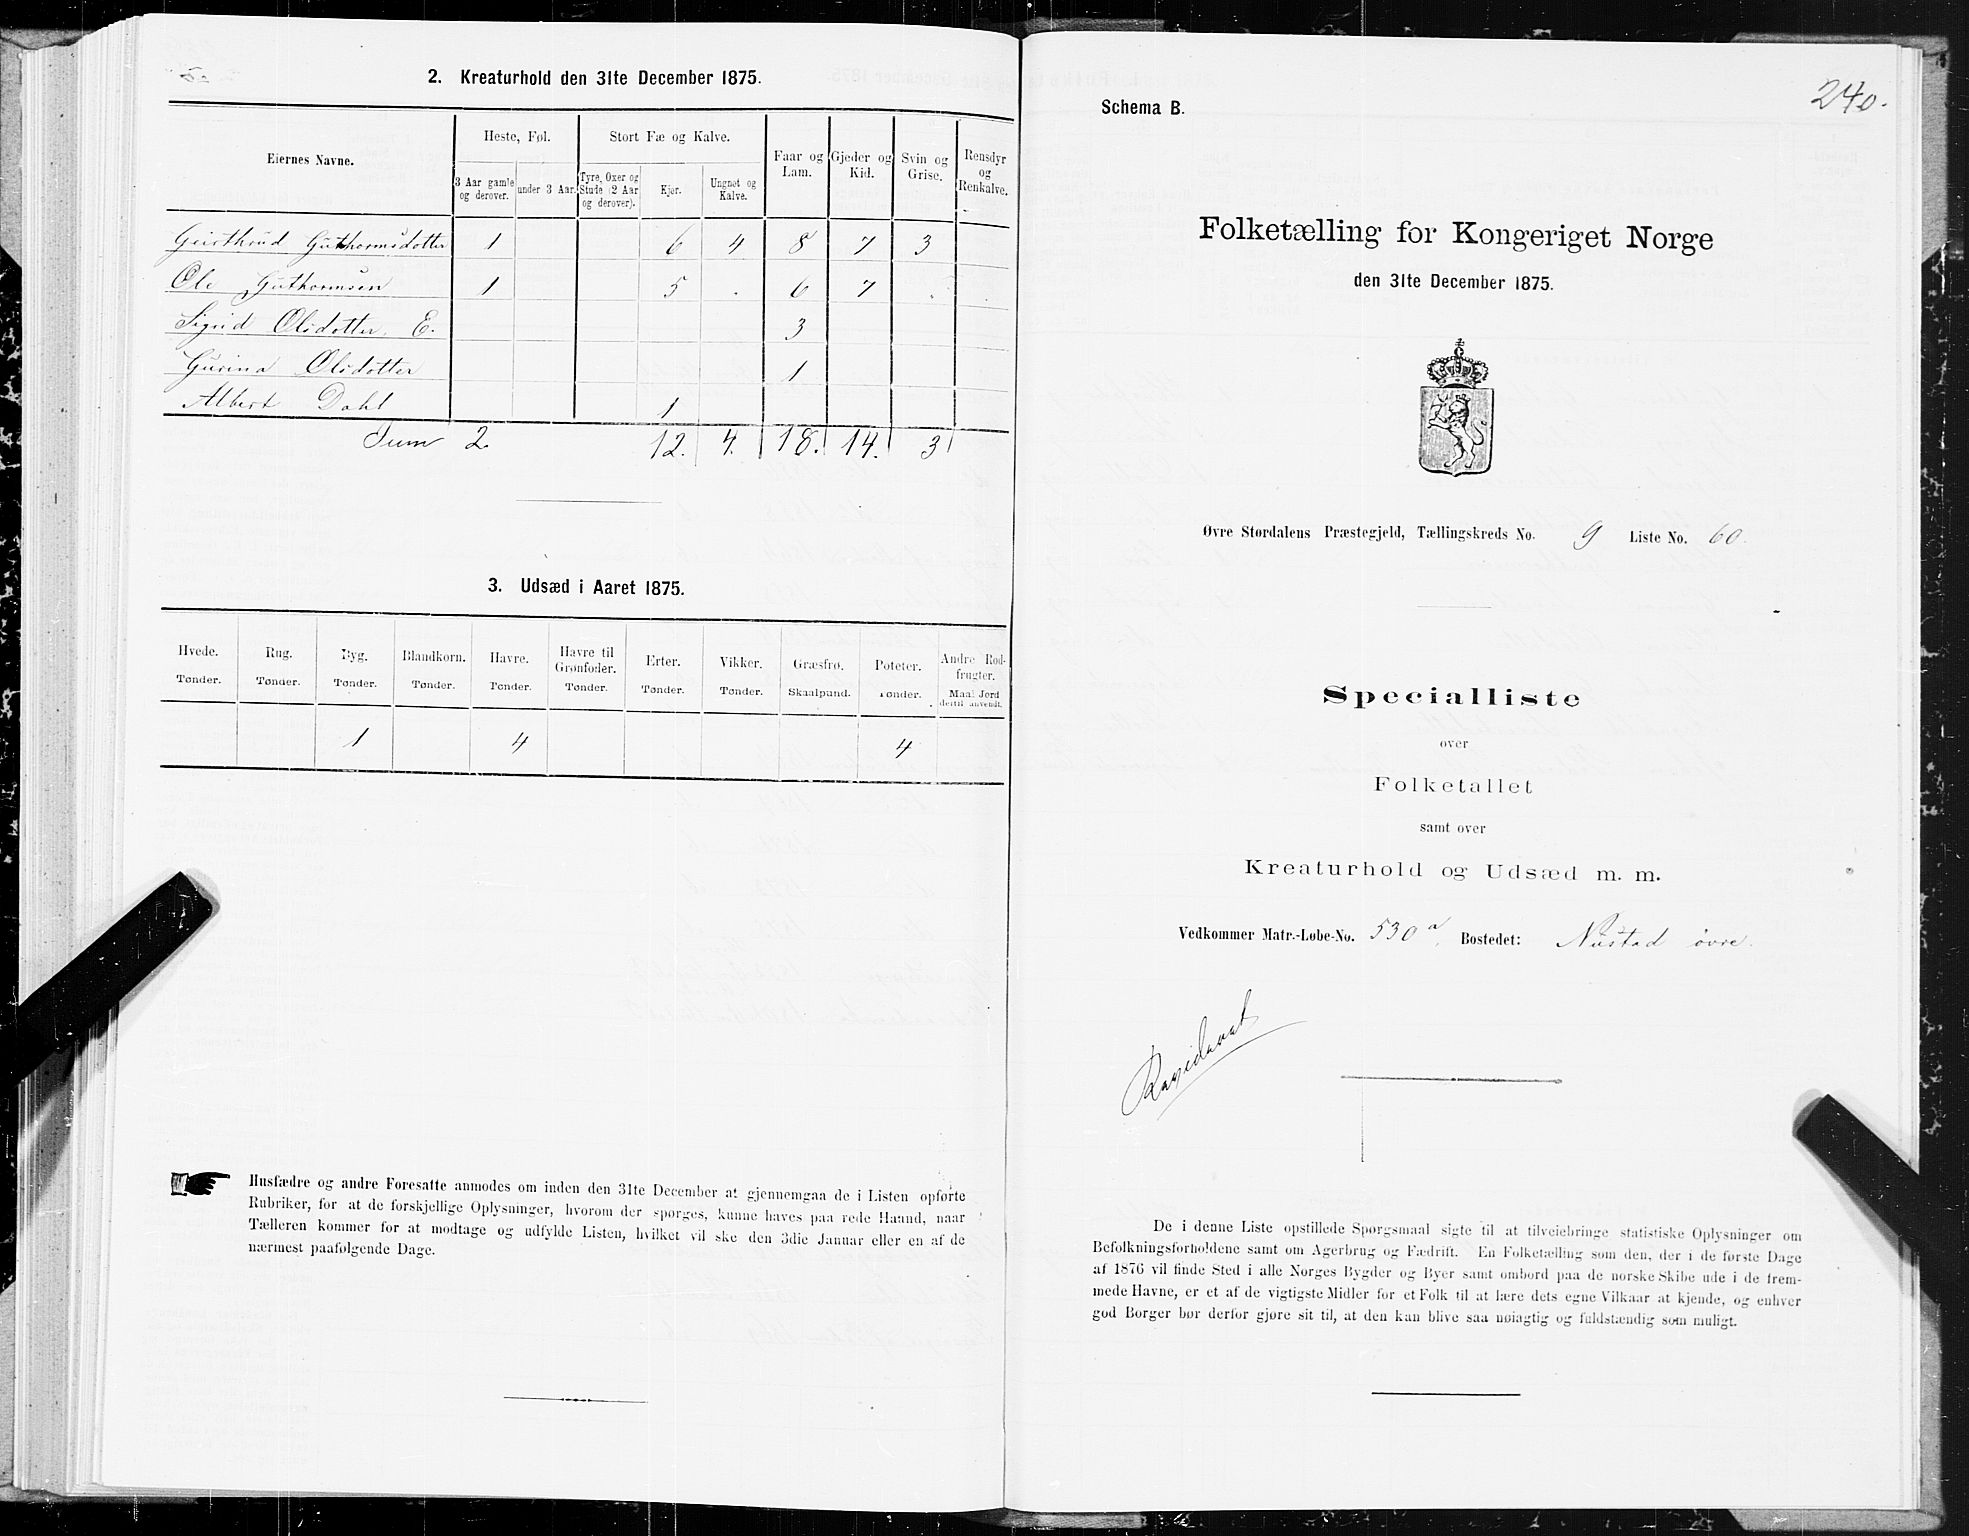 2. Kreaturhold den 31te December 1875.
Eiernes Navne.
Heste, Føl.
Stort Fæ og Kalve.
Faar og Lam.
Gjeder og Kid.
Svin og Grise.
Rensdyr og Renkalve.
3 Aar gamle og derover.
under 3 Aar.
Tyre, Oxer og Stude (2 Aar og derover).
Kjør.
Ungnøt og Kalve.
Geirthrud Guthormsdotter 1 6 4 8 7 3
Ole Guthormsen 1 5 . 6 7 . .
Sigrid Olsdotter E. 3
Gurina Olsdotter 1
Albert Dahl 1
Sum 2. 12. 4. 18. 14. 3
3. Udsæd i Aaret 1875.
Hvede. Rug. Byg. Blandkorn. Havre. Havre til Grønfoder. Erter. Vikker. Græsfrø. Poteter. Andre Rodfrugter.
Tønder. Tønder. Tønder. Tønder. Tønder. Tønder. Tønder. Tønder. Skaalpund. Tønder. Maal Jord dertil anvendt.
1 4 4
Husfædre og andre Foresatte anmodes om inden den 31te December at gjennemgaa de i Listen opførte
Rubriker, for at de forskjellige Oplysninger, hvorom der spørges, kunne haves paa rede Haand, naar
Tælleren kommer for at modtage og udfylde Listen, hvilket vil ske den 3die Januar eller en af de
nærmest paafølgende Dage.
240.
Schema B.
Folketælling for Kongeriget Norge
den 31te December 1875.
Øvre Størdalens Præstegjeld, Tællingskreds No. 9 Liste No. 60.
Specialliste
over
Folketallet
samt over
Kreaturhold og Udsæd m. m.
Vedkommer Matr.-Løbe-No. 530a. Bostedet: Nustad øvre.
De i denne Liste opstillede Spørgsmaal sigte til at tilveiebringe statistiske Oplysninger om
Befolkningsforholdene samt om Agerbrug og Fædrift. En Folketælling som den, der i de første Dage
af 1876 vil finde Sted i alle Norges Bygder og Byer samt ombord paa de norske Skibe ude i de frem-
mede Havne, er et af de vigtigste Midler for et Folk til at lære dets egne Vilkaar at kjende, og enhver
god Borger bør derfor gjøre sit til, at den kan blive saa nøiagtig og fuldstændig som muligt.